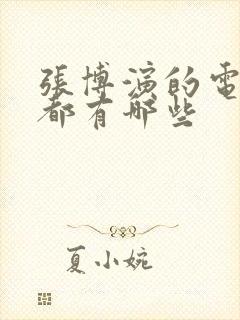 張博演的電
都有哪些
夏小婉